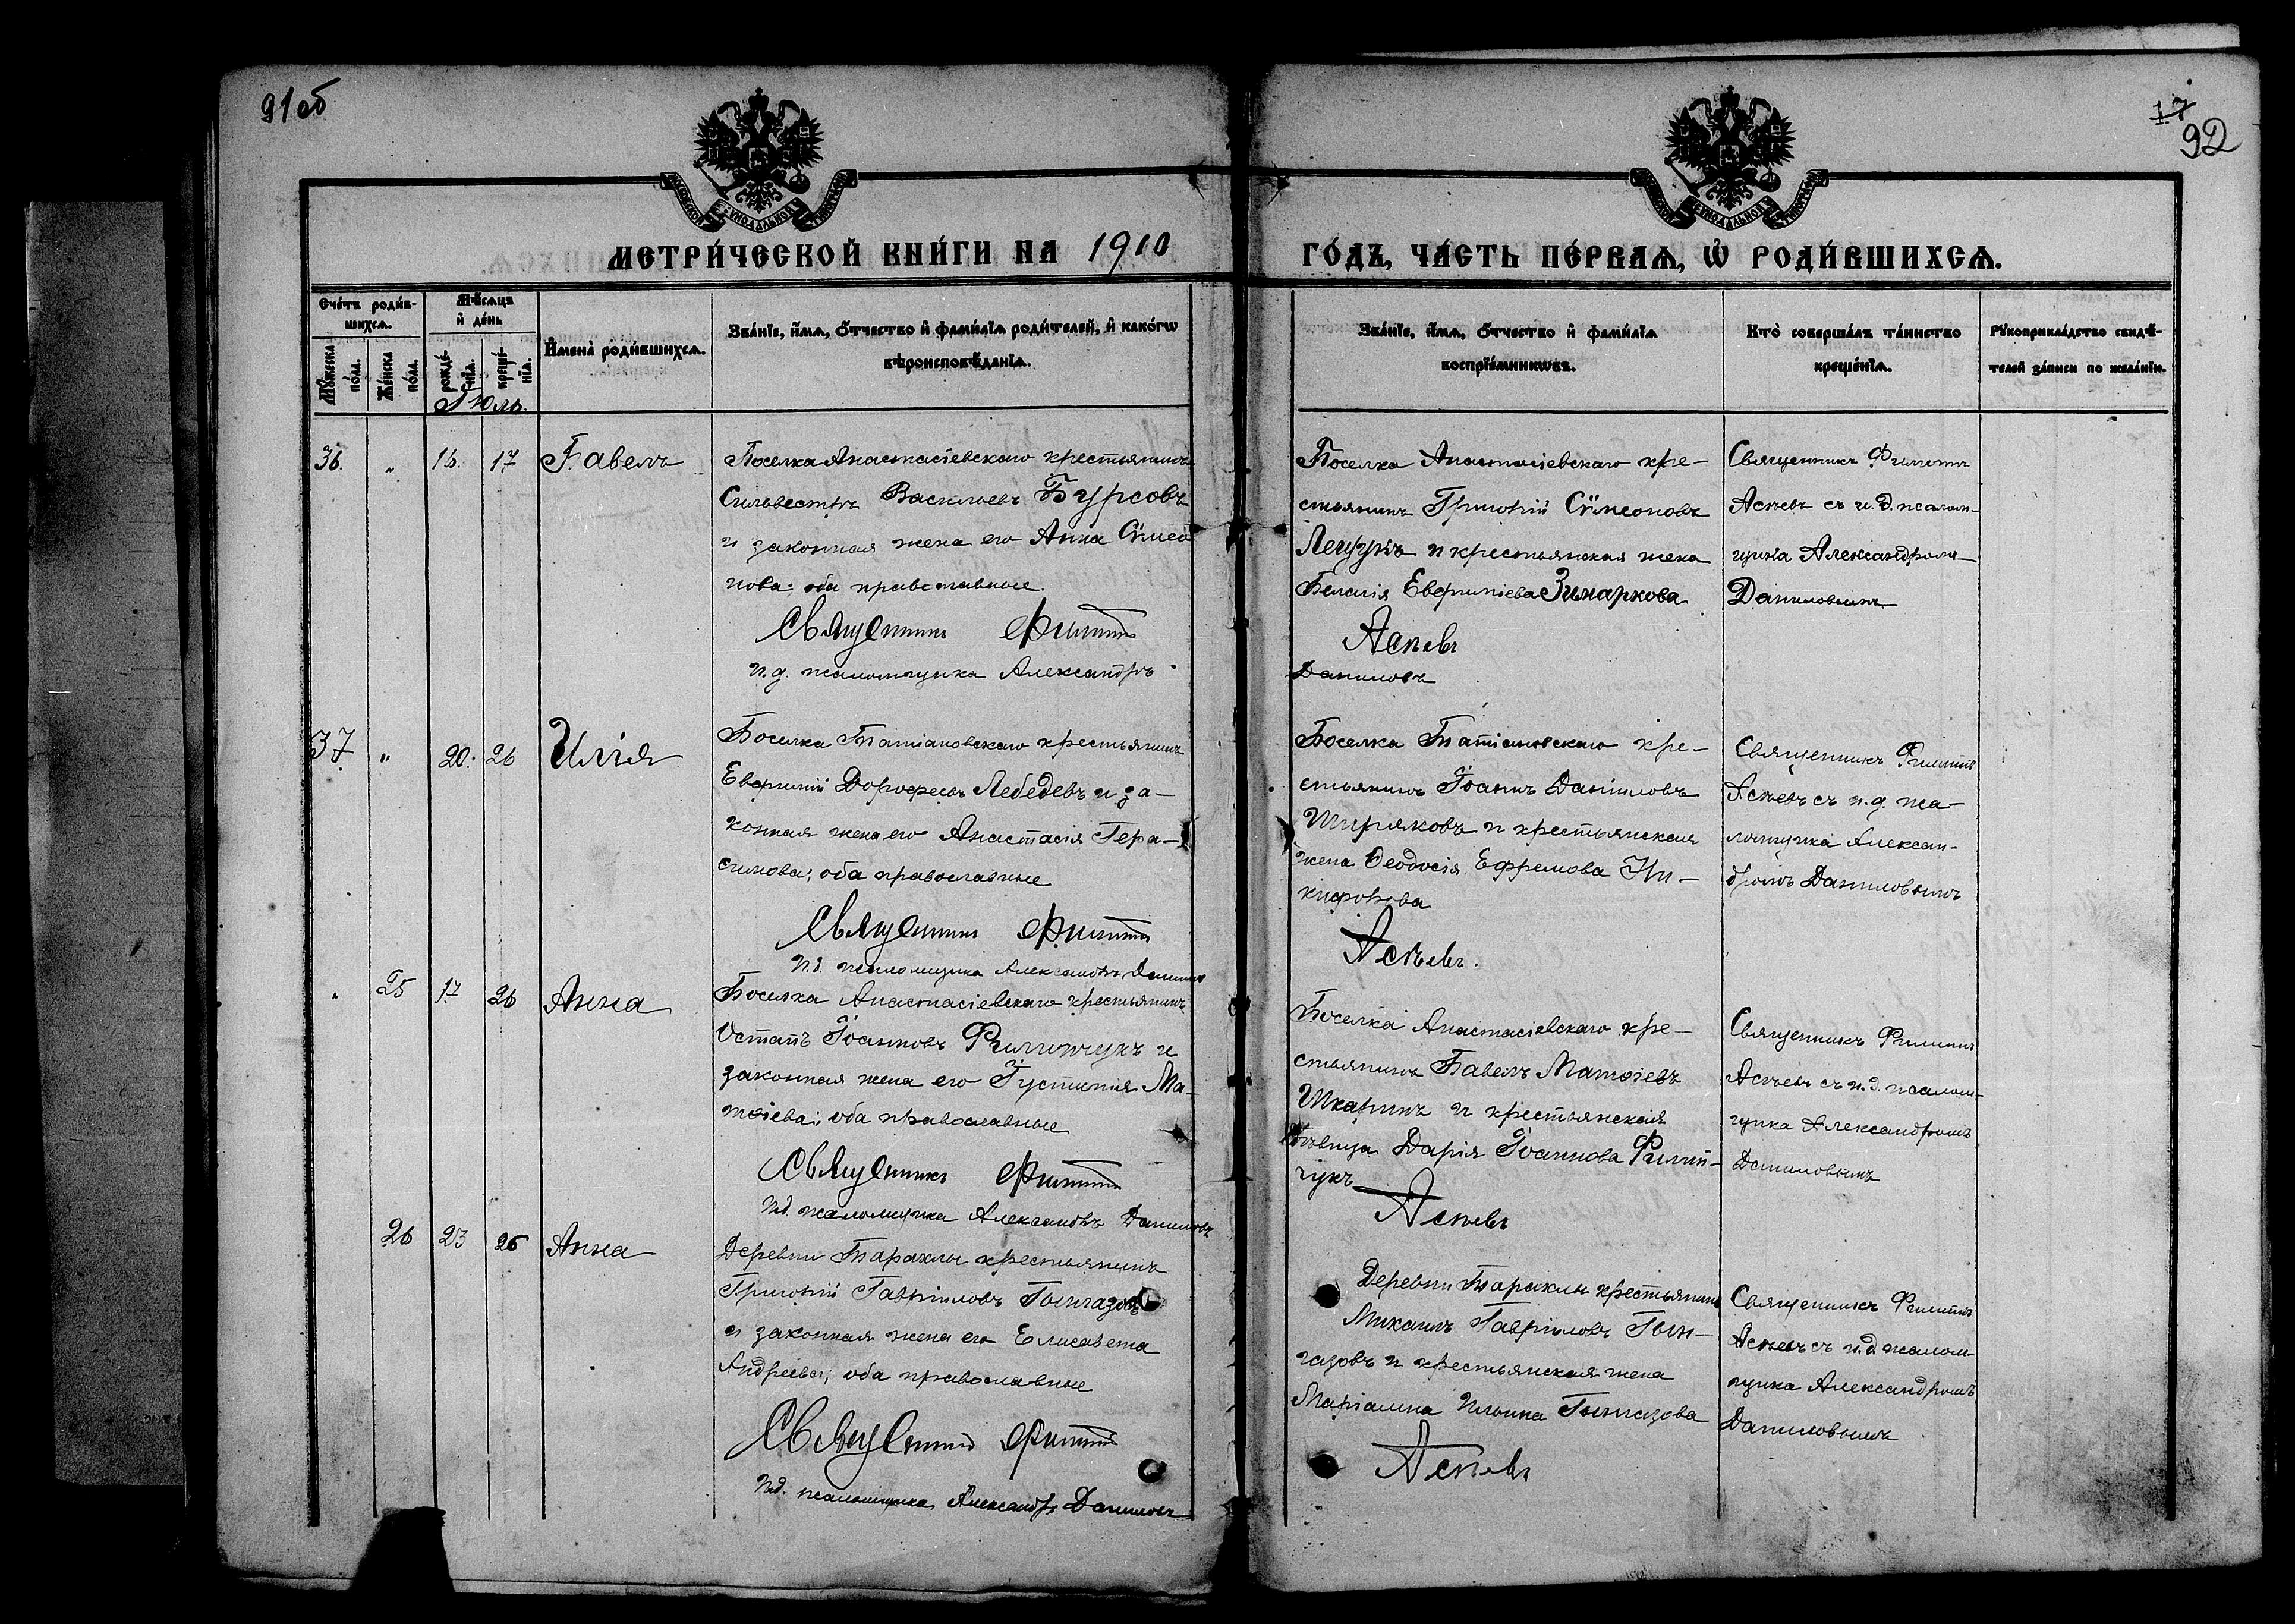 91 об
17
92
МОСКОВСКОЙ СѴНОДАЛЬНОЙ ТИПОГРАФІИ
МОСКОВСКОЙ СѴНОДАЛЬНОЙ ТИПОГРАФІИ
МЕТРИ́ЧЕСКОЙ КНИ́ГИ НА 1910
ГО́ДЪ, ЧА́СТЬ ПЕ́РВАѦ, Ѡ҆ РОДИ́ВШИХСѦ.
Сче́тъ роди́в-
шихсѧ.
Мꙋ́жеска по́ла.
Же́нска по́ла.
Мѣ́сѧцъ
и҆ де́нь
рожде́-
нїѧ.
креще́-
нїѧ.
Іюль.
И҆мена̀ роди́вшихсѧ.
Зва́нїе, и҆́мѧ, ѻ҆́тчество и҆ фами́лїѧ роди́телей, и҆ како́гѡ
вѣроисповѣ́данїѧ.
Зва́нїе, и҆́мѧ, ѻ҆́тчество и҆ фами́лїѧ
воспрїе́мникѡвъ.
Кто̀ соверша́лъ та́инство
креще́нїѧ.
Рꙋкоприкла́дство свидѣ́-
телей за́писи по жела́нїю.
36. „ 16. 17 Павелъ
Поселка Анастасіевскаго крестьянинъ
Сильвестръ Васильевъ Бурсовъ
и законная жена его Анна Сѵмео
нова; оба православные.
Священникъ Филиппъ
и.д. псаломщика Александръ
Поселка Анастасіевскаго кре-
стьянинъ Григорій Сѵмеоновъ
Лещукъ и крестьянская жена
Пелагія Евфиміева Зинаркова
Аспевъ
Даниловъ
Священникъ Филиппъ
Аспевъ съ и.д. псалом-
щика Александромъ
Даниловымъ
37 „ 20. 26 Илія
Поселка Татіановскаго крестьянинъ
Евфимій Дорофеевъ Лебедевъ и за-
конная жена его Анастасія Гера-
симова; оба православные
Священникъ Филиппъ
и.д. псаломщика Александръ Даниловъ
Поселка Татіановскаго кре-
стьянинъ Іоаннъ Даніиловъ
Ширяковъ и крестьянская
жена Ѳеодосія Ефремова Ни-
кифорова
Аспевъ.
Священникъ Филиппъ
Аспевъ съ и.д. пса-
ломщика Алексан-
дромъ Даниловымъ
„ 25 17 26 Анна
Поселка Анастасіевскаго крестьянинъ
Остапъ Іоанновъ Филипчукъ и
законная жена его Іустинія Ма-
тѳіева; оба православные
Священникъ Филиппъ
и.д. псаломщика Александръ Даниловъ
Поселка Анастасіевскаго кре-
стьянинъ Павелъ Матѳіевъ
Шкаринъ и крестьянская
дѣвица Дарія Іоаннова Филип-
чукъ
Аспевъ
Священникъ Филиппъ
Аспевъ съ и.д. псалом-
щика Александромъ
Даниловымъ
26 23 26 Анна
Деревни Тараклы крестьянинъ
Григорій Гавріиловъ Гынгазовъ
и законная жена его Елисавета
Андреева; оба православные
Священникъ Филиппъ
и.д. псаломщика Александръ Даниловъ
Деревни Тараклы крестьянинъ
Михаилъ Гавріиловъ Гын-
газовъ и крестьянская жена
Маріамна Ильина Гынгазова
Аспевъ
Священникъ Филиппъ
Аспевъ съ и.д. псалом-
щика Александромъ
Даниловымъ